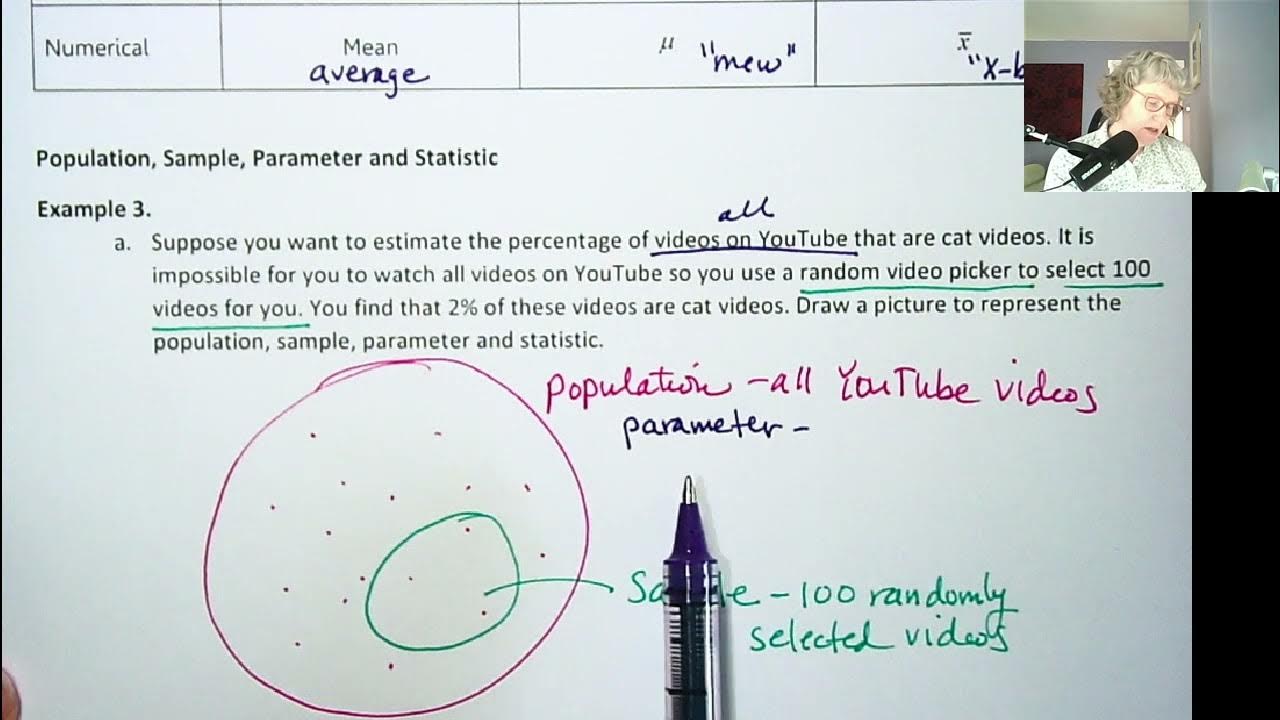 Numerical Mean μ "mew" x̄
average "x-b
Population, Sample, Parameter and Statistic
Example 3.
all
a. Suppose you want to estimate the percentage of videos on YouTube that are cat videos. It is
impossible for you to watch all videos on YouTube so you use a random video picker to select 100
videos for you. You find that 2% of these videos are cat videos. Draw a picture to represent the
population, sample, parameter and statistic.
population - all YouTube videos
parameter -
- 100 randomly
selected videos